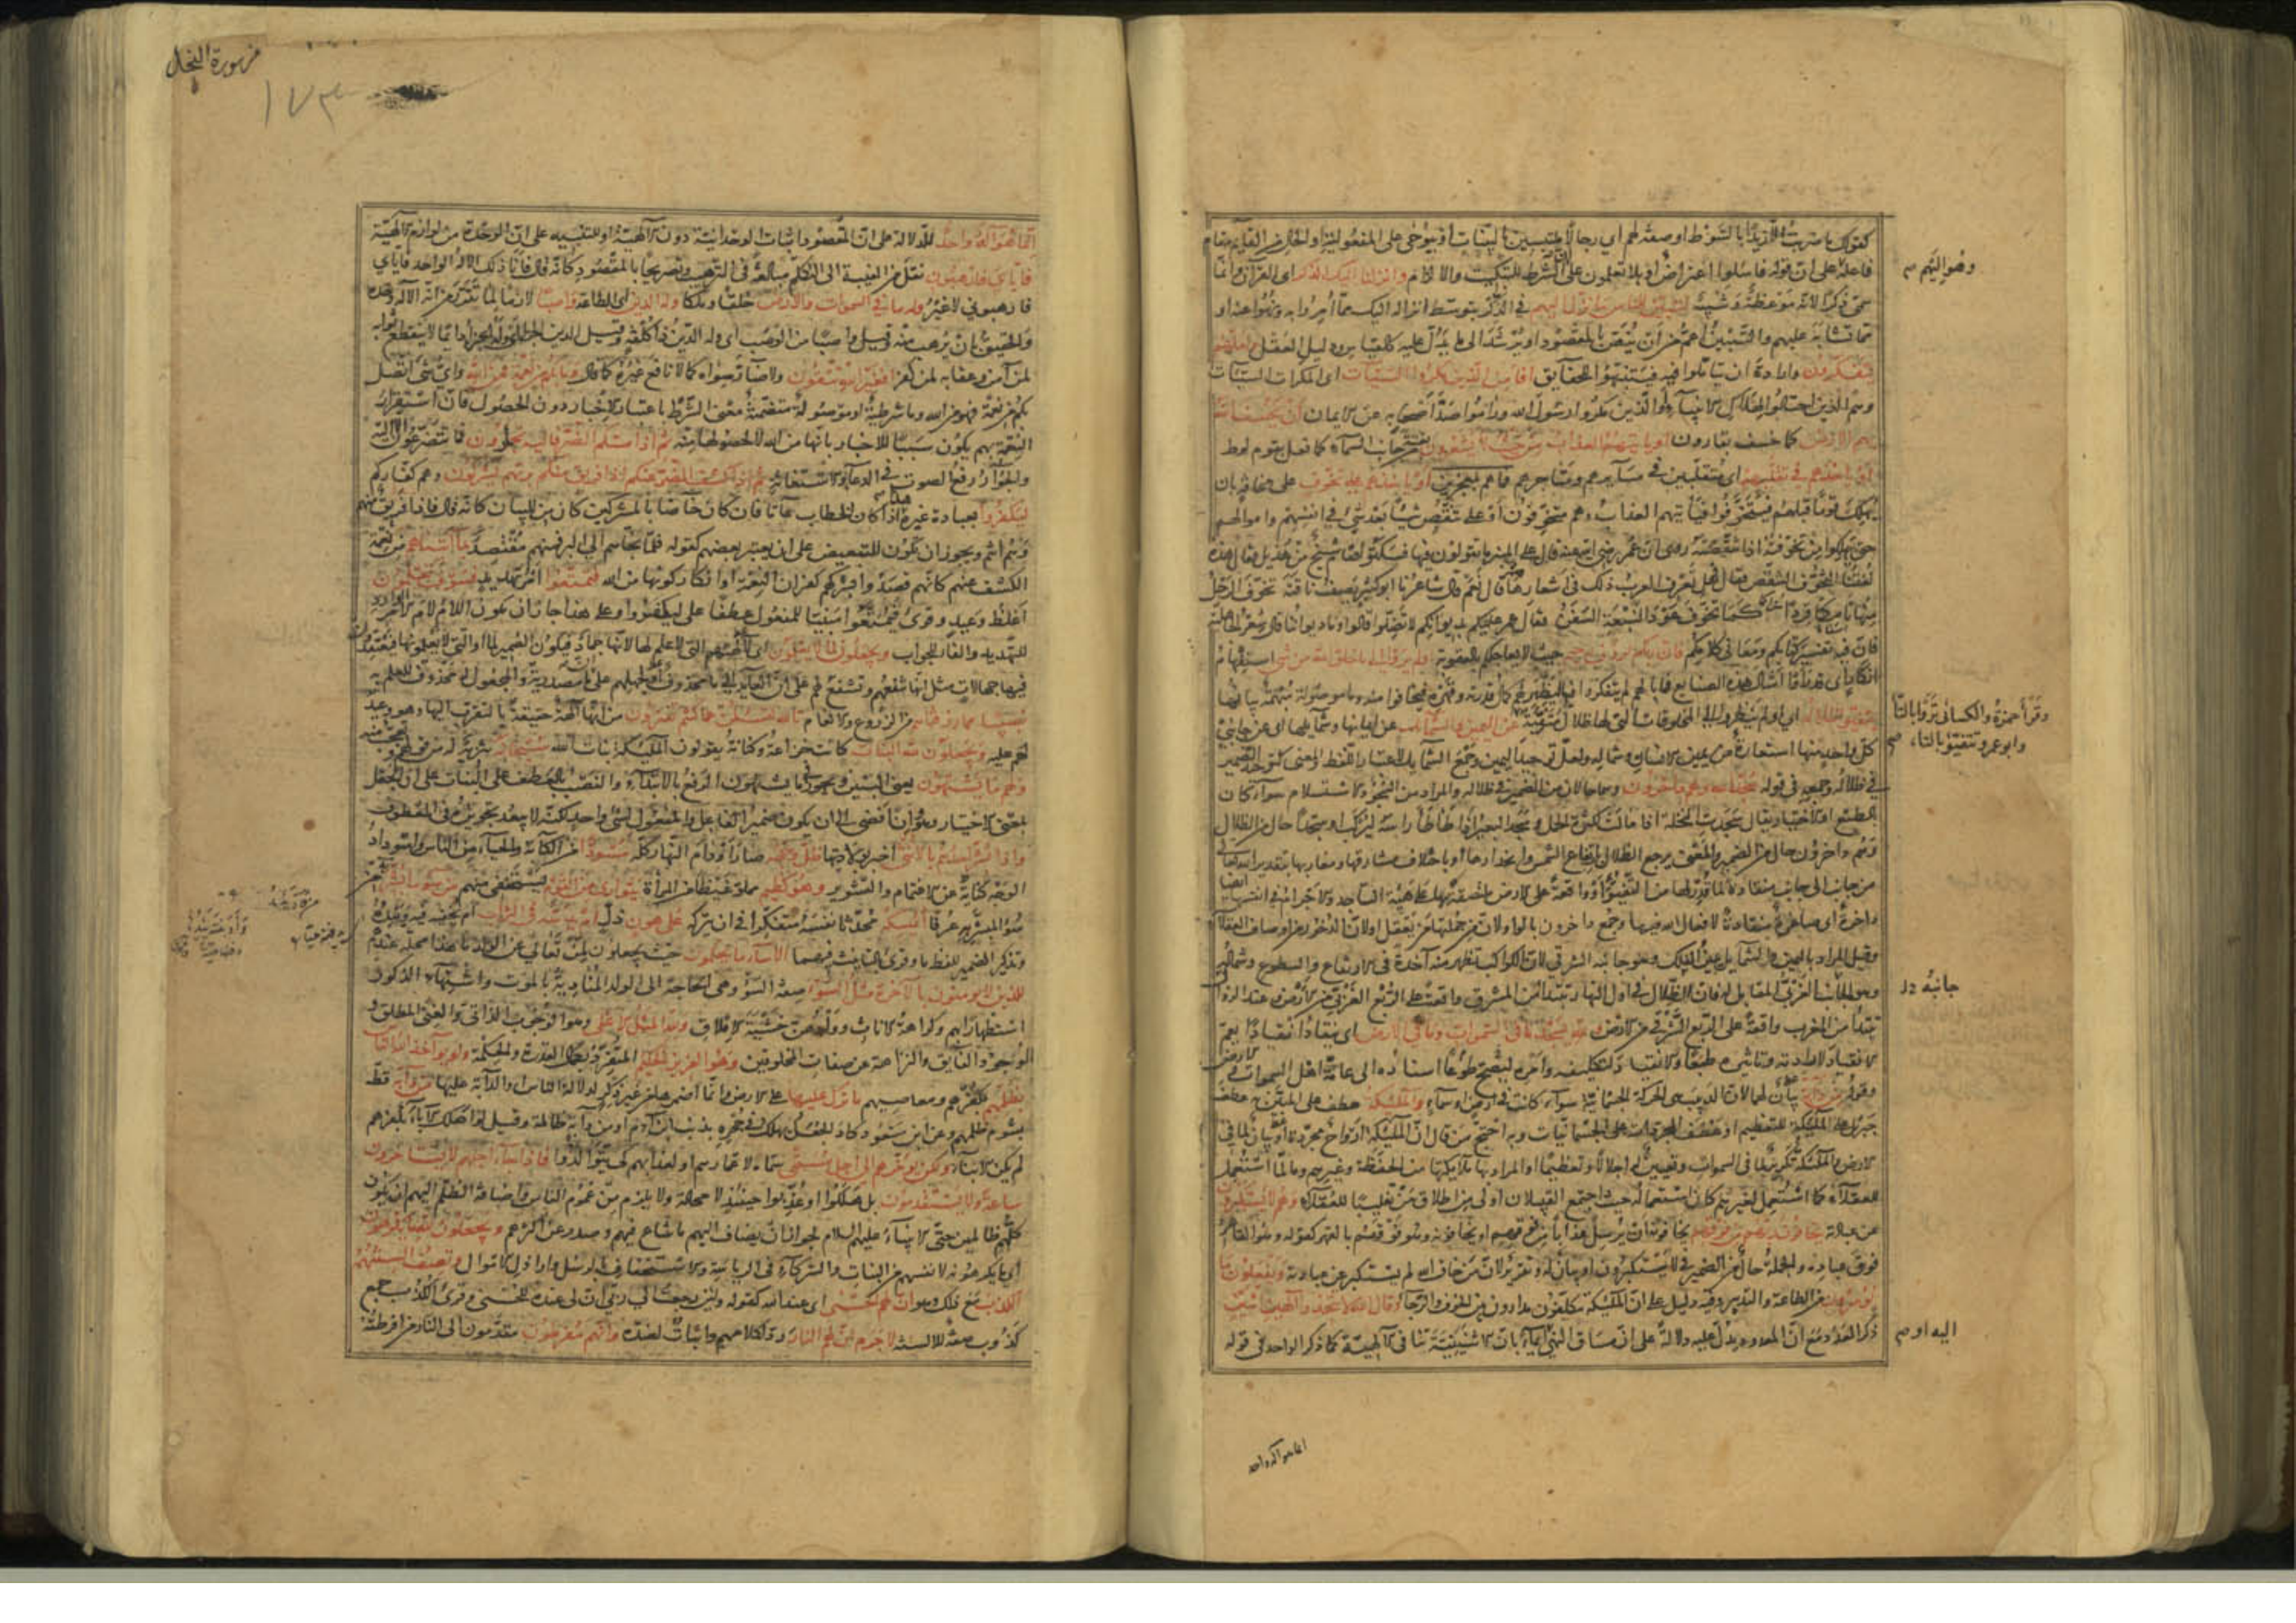 كقولك ما ضربت الا زيدا بالسوط او صفة لهم اي رجالا ملتبسين بالبينات او بيوحى على المفعولية او الحال من القائم مقام
فاعله على ان قوله فاسئلوا اعتراض او بلا تعلمون على ان الشرط للتبكيت والالزام وانزلنا اليك الذكر اى القرآن وانما
سمى ذكرا لانه موعظة وتنبيه لتبين للناس ما نزل اليهم في الذكر بتوسط انزاله اليك مما أمروا به ونهوا عنه او
مما تشابه عليهم والتبيين أعم من أن ينص بالمقصود او يرشد الى ما يدل عليه كالقياس ودليل العقل ولعلهم
يتفكرون وارادة ان يتأملوا فيه فيتنبهوا للحقايق افأمن الذين مكروا السيئات اى المكرات السيئات
وهم الذين احتالوا لهلاك الانبياء او الذين مكروا رسول الله وراموا صد أصحابه عن الايمان أن يخسف الله
بهم الارض كما خسف بقارون او يأتيهم العذاب من حيث لا يشعرون بغتة من جانب السماء كما فعل بقوم لوط
أو يأخذهم في تقلبهم اى متقلبين في مسايرهم ومتاجرهم فما هم بمعجزين او يأخذهم على تخوف على مخافة بان
يهلك قوما قبلهم فيتخوفوا فيأتيهم العذاب وهم متخوفون أو على تنقص شيئا بعد شئ في انفسهم واموالهم
حتى يهلكوا من تخوفته اذا تنقصته روى ان عمر رضى الله عنه قال على المنبر ما تقولون فيها فسكتوا فقام شيخ من هذيل فقال هذه
لغتنا التخوف التنقص فقال هل تعرف العرب ذلك في أشعارها قال نعم قال شاعرنا ابو كبير يصف ناقته تخوف الرحل
منها تامكا قردا كما تخوف عود النبعة السفن فقال عمر عليكم بديوانكم لا تضلوا قالوا وما ديواننا قال شعر الجاهلية
فان فيه تفسير كتابكم ومعاني كلامكم فان ربكم لرؤف رحيم حيث لا يعاجلكم بالعقوبة اولم يروا الى ما خلق الله من شئ استفهام
انكار اى قد رأوا امثال هذه الصنايع فما بالهم لم يتفكروا فيها ليظهر لهم كمال قدرته وقهره فيخافوا منه وما موصولة مبهمة بيانها
يتفيؤ ظلاله اى اولم ينظروا الى المخلوقات التي لها ظلال متفيئة عن اليمين والشمايل عن ايمانها وشمايلها اى عن جانبي
كل واحد منها استعارة من يمين الانسان وشماله ولعل توحيد اليمين وجمع الشمايل لاعتبار اللفظ والمعنى كتوحيد الضمير
في ظلاله وجمعه في قوله سجدا لله وهم داخرون وهما حالان من الضمير في ظلاله والمراد من السجود الاستسلام سواء كان
بالطبع او الاختيار يقال سجدت النخلة اذا مالت لكثرة الحمل وسجد البعير اذا طأطأ رأسه ليركب او سجدا حال من الظلال
وهم داخرون حال من الضمير والمعنى يرجع الظلال بارتفاع الشمس وانحدارها او باختلاف مشارقها ومغاربها بتقدير الله تعالى
من جانب الى جانب منقادة لما قدر لها من التفيؤ أو واقعة على الارض ملتصقة بها على هيئة الساجد والاجرام في انفسها ايضا
داخرة اى صاغرة منقادة لافعال الله فيها وجمع داخرون بالواو لان من جملتها من يعقل او لان الدخور من اوصاف العقلاء
وقيل المراد باليمين والشمايل يمين الفلك وهو جانبه الشرقي لان الكواكب تظهر منه آخذة في الارتفاع والسطوع وشماله
وهو الجانب الغربي المقابل له فان الظلال في اول النهار تبتدئ من المشرق واقعة على الربع الغربي من الارض وعند الزوال
تبتدأ من المغرب واقعة على الربع الشرقي من الارض ولله يسجد ما في السموات وما في الارض اى ينقاد انقيادا يعم
الانقياد لارادته وتاثيره طبعا والانقياد لتكليفه وأمره ليصح طوعا اسناده الى عامة اهل السموات والارض
وقوله من دابة بيان لهما لان الدبيب هى الحركة الجسمانية سواء كانت في ارض او سماء والملئكة عطف على المبين به عطف
جبرئل على الملئكة للتعظيم او عطف المجردات على الجسمانيات وبه احتج من قال ان الملئكة ارواح مجردة او بيان لما في
الارض والملئكة تكرير لما في السموات وتعيين له اجلالا وتعظيما او المراد بها ملايكتها من الحفظة وغيرهم وما لما استعمل
للعقلاء كما استعمل لغيرهم كان استعماله حيث اجتمع القبيلان اولى من اطلاق من تغليبا للعقلاء وهم لا يستكبرون
عن عبادته يخافون ربهم من فوقهم يخافونه أن يرسل عذابا من فوقهم او يخافونه وهو فوقهم بالقهر كقوله وهو القاهر
فوق عباده والجملة حال من الضمير في لا يستكبرون او بيان له وتقرير لان من خاف الله لم يستكبر عن عبادته ويفعلون ما
يؤمرون من الطاعة والتدبير وفيه دليل على ان الملئكة مكلفون مدارون بين الخوف والرجاء وقال الله لا تتخذوا الهين اثنين
ذكر العدد مع ان المعدود يدل عليه دلالة على ان مساق النهى اليه او ايماء بان الاثنينية تنافي الالهية كما ذكر الواحد في قوله
وهو اليهم
وقرأ حمزة والكسائى تروا بالتاء
وابو عمرو تتفيؤ بالتاء صح
جانبه
اليه او
انما هو اله واحد
من سورة النحل
١٧٣
انما هو اله واحد للدلالة على ان المقصود اثبات الوحدانية دون الالهية او للتنبيه على ان الوحدة من لوازم الالهية
فاياي فارهبون نقل من الغيبة الى التكلم مبالغة في الترهيب وتصريحا بالمقصود كانه قال فانا ذلك الاله الواحد فاياي
فارهبون لا غير وله ما في السموات والارض خلقا وملكا وله الدين اى الطاعة واصبا لازما لما تقرر من انه الاله وحده
والحقيق بان يرهب منه وقيل واصبا من الوصب اى وله الدين ذا كلفة وقيل الدين الجزاء اى وله الجزاء دايما لا ينقطع ثوابه
لمن آمن وعقابه لمن كفر افغير الله تتقون ولا ضار سواه كما لا نافع غيره كما قال وما بكم من نعمة فمن الله واى شئ اتصل
بكم من نعمة فهو من الله وما شرطية او موصولة متضمنة معنى الشرط باعتبار الاخبار دون الحصول فان استقرار
النعمة بهم يكون سببا للاخبار بانها من الله لا لحصولها منه ثم اذا مسكم الضر فاليه تجأرون فما تتضرعون الا اليه
والجؤار رفع الصوت في الدعاء والاستغاثة ثم اذا كشف الضر عنكم اذا فريق منكم بربهم يشركون وهم كفاركم
ليكفروا بعبادة غيره هذا اذا كان الخطاب عاما فان كان خاصا بالمشركين كان من للبيان كانه قال فاذا فريق منهم
وهم انتم ويجوز ان تكون للتبعيض على ان يعتبر بعضهم كقوله فلما نجاهم الى البر فمنهم مقتصد بما آتيناهم من نعمة
الكشف عنهم كانهم قصدوا بشركهم كفران النعمة او انكار كونها من الله فتمتعوا امر تهديد فسوف تعلمون
أغلظ وعيد وقرئ فيمتعوا مبنيا للمفعول عطفا على ليكفروا وعلى هذا جاز ان يكون اللام لام الامر الوارد
للتهديد والفاء للجواب ويجعلون لما لا يعلمون اى لآلهتهم التى لا علم لها لانها جماد فيكون الضمير لما او التى لا يعلمونها فيعتقدون
فيها جهالات مثل انها تنفعهم وتشفع لهم على ان العائد الى ما محذوف او لجهلهم على ان ما مصدرية والمجعول له محذوف للعلم به
نصيبا مما رزقناهم من الزروع والانعام تالله لتسئلن عما كنتم تفترون من انها آلهة حقيقة بالتقرب اليها وهو وعيد
لهم عليه ويجعلون لله البنات كانت خزاعة وكنانة يقولون الملئكة بنات الله سبحانه تنزيه له من قولهم او تعجب منه
ولهم ما يشتهون يعنى البنين ويجوز في ما يشتهون الرفع بالابتداء والنصب بالعطف على البنات على ان الجعل
بمعنى الاختيار وهو وان أفضى الى ان يكون ضمير الفاعل والمفعول لشئ واحد لكنه لا يبعد تجويزه في المعطوف
واذا بشر احدهم بالانثى اخبر بولادتها ظل وجهه صار أو دام النهار كله مسودا من الكآبة والحياء من الناس واسوداد
الوجه كناية عن الاغتمام والتشوير وهو كظيم مملو غيظا من المرأة يتوارى من القوم يستخفى منهم من سوء ما بشر به من
سوء المبشر به عرفا ايمسكه محدثا نفسه متفكرا في ان يتركه على هون ذل ام يدسه في التراب ام يخفيه فيه ويئده
وتذكير الضمير للفظ ما وقرئ بالتانيث فيهما الا ساء ما يحكمون حيث يجعلون لمن تعالى عن الولد ما هذا محله عندهم
للذين لا يؤمنون بالآخرة مثل السوء صفة السوء وهى الحاجة الى الولد المنادية بالموت واشتهاء الذكور
استظهارا بهم وكراهة الاناث ووأدهن خشية الاملاق ولله المثل الاعلى وهو الوجوب الذاتي والغنى المطلق و
الجود الفايق والنزاهة عن صفات المخلوقين وهو العزيز الحكيم المتفرد بكمال القدرة والحكمة ولو يؤاخذ الله الناس
بظلمهم بكفرهم ومعاصيهم ما ترك عليها على الارض وانما أضمرها من غير ذكر لدلالة الناس والدابة عليها من دابة قط
بشوم ظلمهم وعن ابن مسعود كاد الجعل يهلك في جحره بذنب ابن آدم او من دابة ظالمة وقيل لو اهلك الآباء بكفرهم
لم يكن الابناء ولكن يؤخرهم الى اجل مسمى سماه لاعمارهم او لعذابهم كى يتوالدوا فاذا جاء اجلهم لا يستأخرون
ساعة ولا يستقدمون بل هلكوا او عذبوا حينئذ لا محالة ولا يلزم من عموم الناس واضافة الظلم اليهم ان يكون
كلهم ظالمين حتى الانبياء عليهم السلام لجواز ان يضاف اليهم ما شاع فيهم وصدر عن اكثرهم ويجعلون لله ما يكرهون
اى ما يكرهونه لانفسهم من البنات والشركاء في الرياسة والاستخفاف بالرسل واراذل الاموال وتصف السنتهم
الكذب مع ذلك وهو ان لهم الحسنى اى عند الله كقوله ولئن رجعت الى ربى ان لى عنده للحسنى وقرئ الكذب جمع
كذوب صفة للالسنة لا جرم ان لهم النار رد لكلامهم واثبات لضده وانهم مفرطون مقدمون الى النار من افرطته